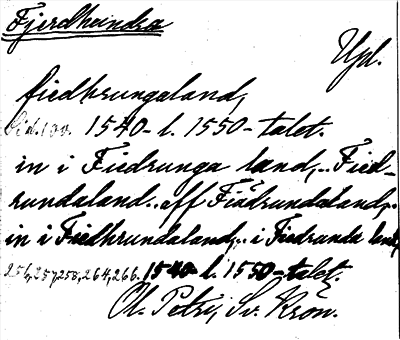 Fjerdhundra
Upl.
fiedhrungaland,
Sid. 100. 1540- l. 1550-talet.
in i Fiedrunga land,.. Fied-
rundaland.. aff Fiädrundaland,..
in i Fiedhrundaland,.. i Fiedranda land,
256, 257, 258, 264, 266. 1540- l. 1550-talet.
Ol. Petri, Sv. Krön.